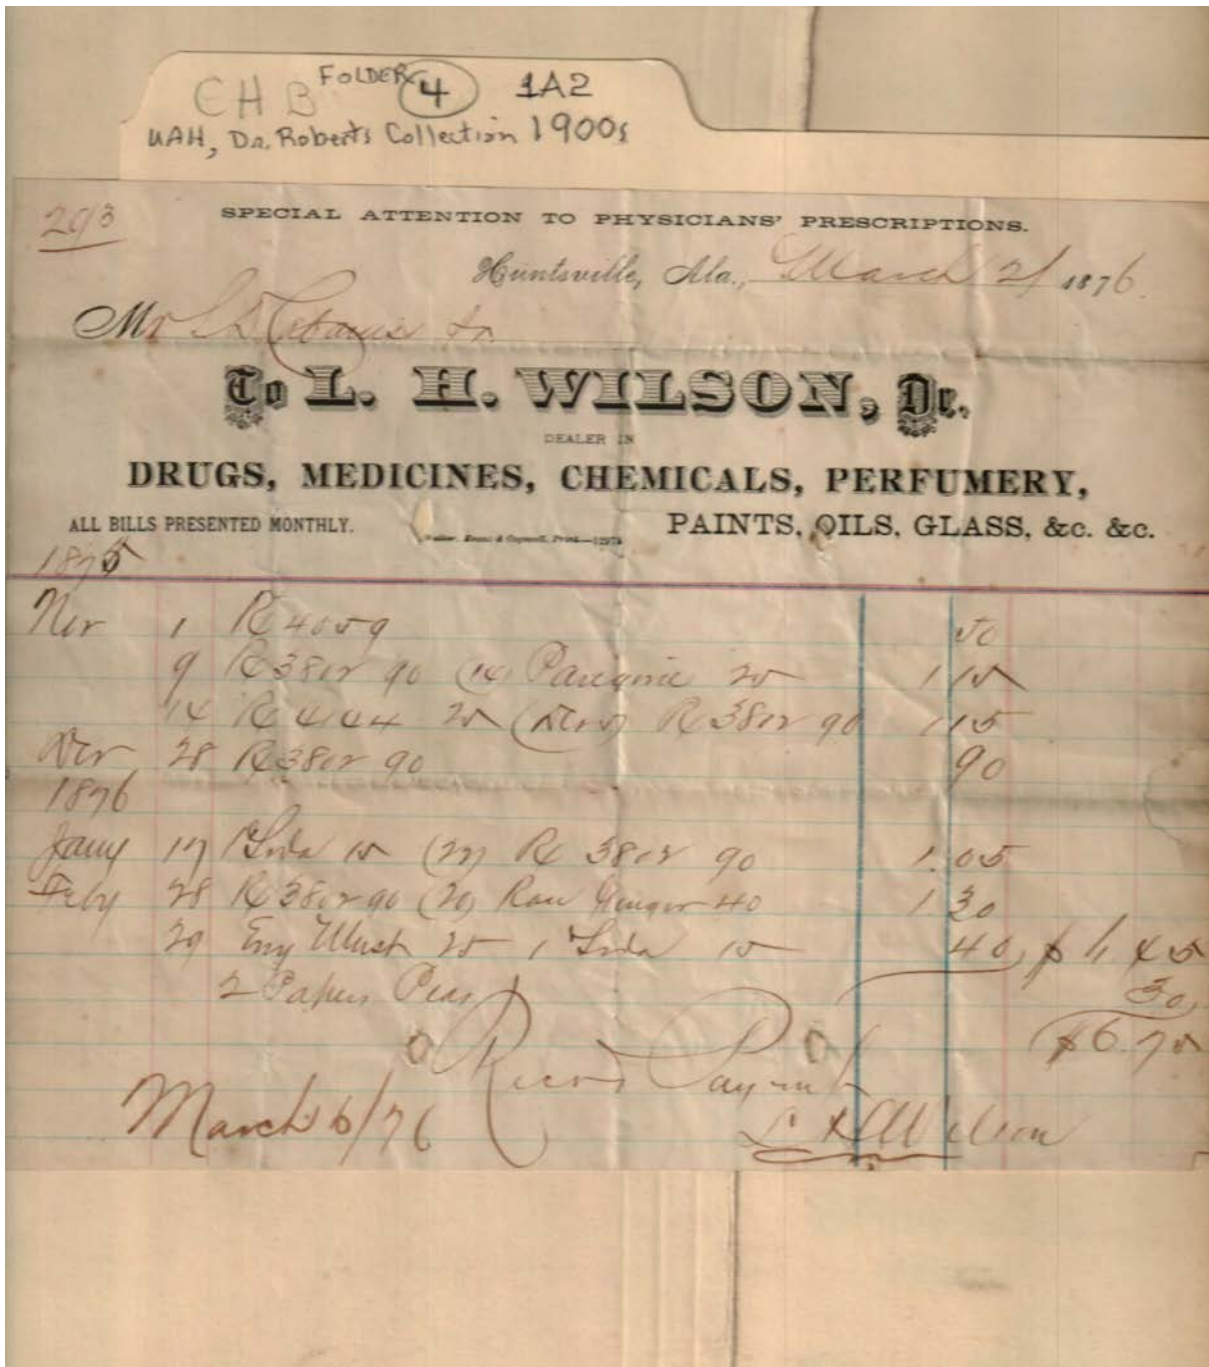 CHB FOLDER 4 1A2
UAH, Dr. Roberts Collection 1900s
293
SPECIAL ATTENTION TO PHYSICIANS' PRESCRIPTIONS.
Huntsville, Ala., March 2/ 1876.
Mr
To L. H. WILSON, Dr.
DEALER IN
DRUGS, MEDICINES, CHEMICALS, PERFUMERY,
ALL BILLS PRESENTED MONTHLY. PAINTS, OILS, GLASS, &c. &c.
Walker, Evans & Cogswell, Print.
1875
Nov 1 Rx 4059 50
9 Rx 3802 90 (14) Paregoric 25 1 15
14 Rx 4144 25 Rx 3802 90 1 15
28 Rx 3802 90 90
1876
Jany 17 1 Soda 15 (27) Rx 3802 90 1.05
Feby 28 Rx 3802 90 (20) Ginger 40 1 30
29 Eng Must 25 1 Soda 15 40 $ 6 45
2 Papers Peas 30
$6.75
Payment
March 6/76 L H Wilson